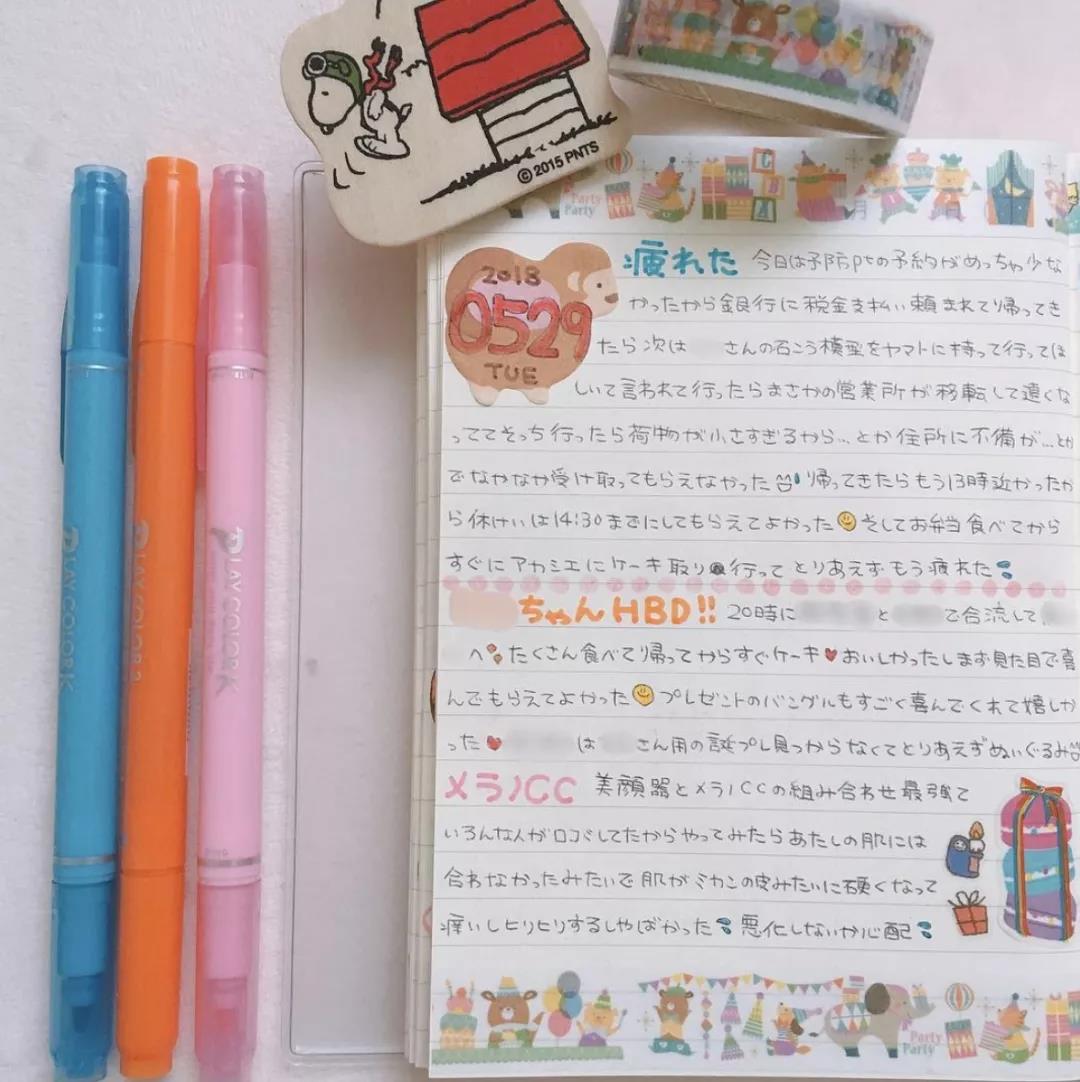 © 2015 PNTS
Party
Party
C
B
A
2018
0529
TUE
疲れた 今日は予防ptの予約がめっちゃ少な
かったから銀行に税金支払い頼まれて帰ってき
たら次は さんの石こう模型をヤマトに持って行ってほ
しいて言われて行ったらまさかの営業所が移転して遠くな
っててそっち行ったら荷物が小さすぎるから…とか住所に不備が…とか
でなかなか受け取ってもらえなかった 帰ってきたらもう13時近かったか
ら休けいは14:30までにしてもらえてよかった そしてお弁当食べてから
すぐにアカシエにケーキ取り 行って とりあえずもう疲れた
ちゃんHBD!! 20時に と で合流して、
へ たくさん食べて帰ってからすぐケーキ♥おいしかったしまず見た目で喜
んでもらえてよかった プレゼントのバングルもすごく喜んでくれて嬉しか
った♥ は さん用の誕プレ見つからなくてとりあえずぬいぐるみ
メラノCC 美顔器とメラノCCの組み合わせ最強て
いろんな人が口コミしてたからやってみたらあたしの肌には
合わなかったみたいで肌がミカンの皮みたいに硬くなって
痒いしヒリヒリするしやばかった 悪化しないか心配
Party
Party
PLAY COLOR K
PLAY COLOR 2
PLAY COLOR K